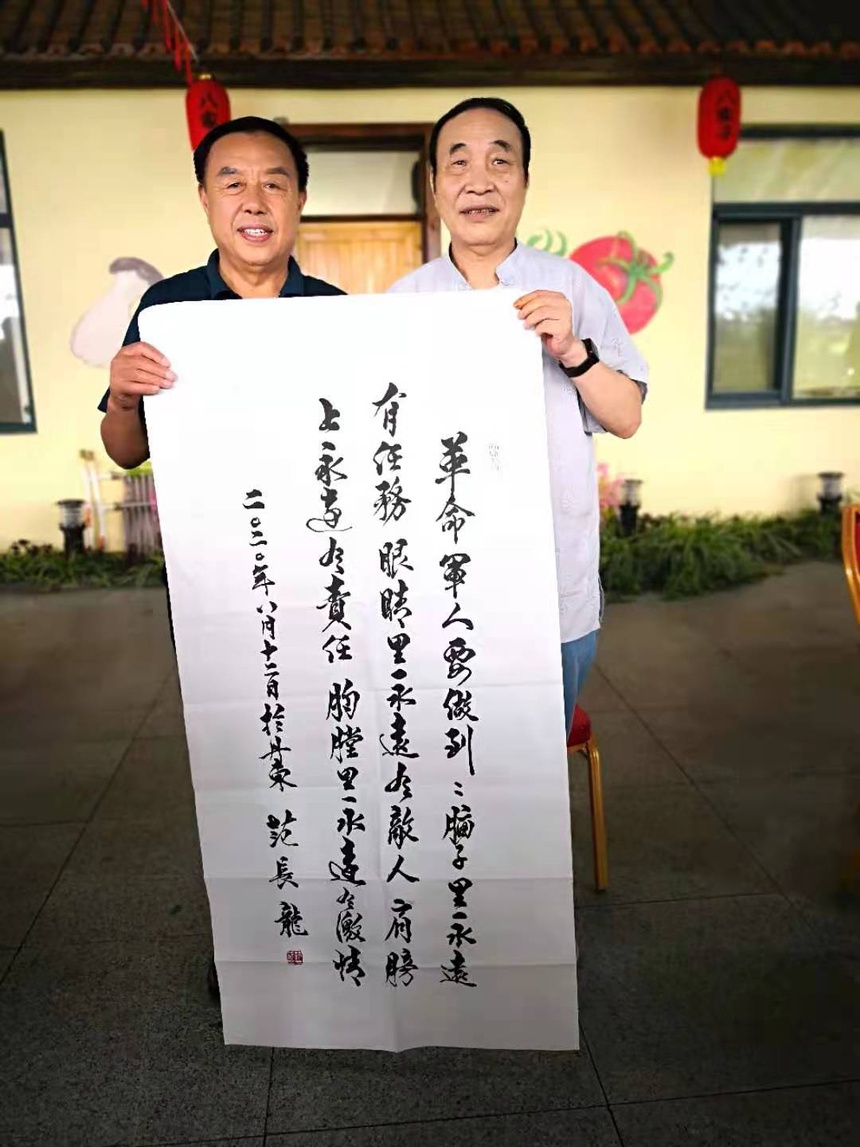 革命軍人要做到：腦子里永遠
有任務 眼睛里永遠有敵人 肩膀
上永遠有責任 胸膛里永遠有激情
二〇二〇年八月十二日於丹東 范長龍